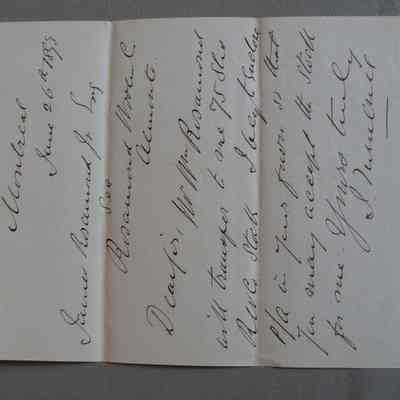 Montreal
June 26th 1893
James Rosamond Jr Esq
Sec
Rosamond Woolen C.
Almonte.
Dear Sir, Mr Wm Rosamond
will transfer to me 75 Shs
R.W.C. Stock I beg to enclose
P/A in your favor so that
you may accept the Stock
for me. Yours truly